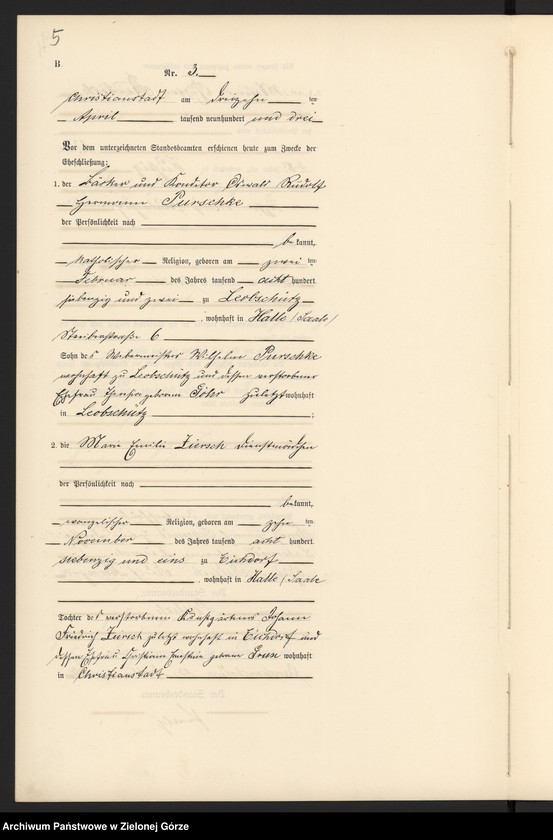 5
B.
Nr. 3.
Christianstadt am dreizehn ten
April tausend neunhundert und drei
Vor dem unterzeichneten Standesbeamten erschienen heute zum Zwecke der
Eheschließung:
1. der Bäcker und Konditor Oswald Rudolf
Hermann Purschke
der Persönlichkeit nach
bekannt,
katholischer Religion, geboren am zwei ten
Februar des Jahres tausend acht hundert
siebenzig und zwei zu Leobschütz
, wohnhaft in Halle /Saale/
6
Sohn des Webermeister Wilhelm Purschke
wohnhaft zu Leobschütz und dessen verstorbener
Ehefrau geboren zuletzt wohnhaft
in Leobschütz ;
2. die Marie Emilie Ziersch Dienstmädchen
der Persönlichkeit nach
bekannt,
evangelischer Religion, geboren am zehn ten
November des Jahres tausend acht hundert
siebenzig und eins zu Eichdorf
, wohnhaft in Halle /Saale
Tochter des verstorbenen Kunstgärtners Johann
Friedrich Ziersch zuletzt wohnhaft in Eichdorf und
dessen Ehefrau Christiane Ernestine geborene wohnhaft
in Christianstadt
Archiwum Państwowe w Zielonej Górze